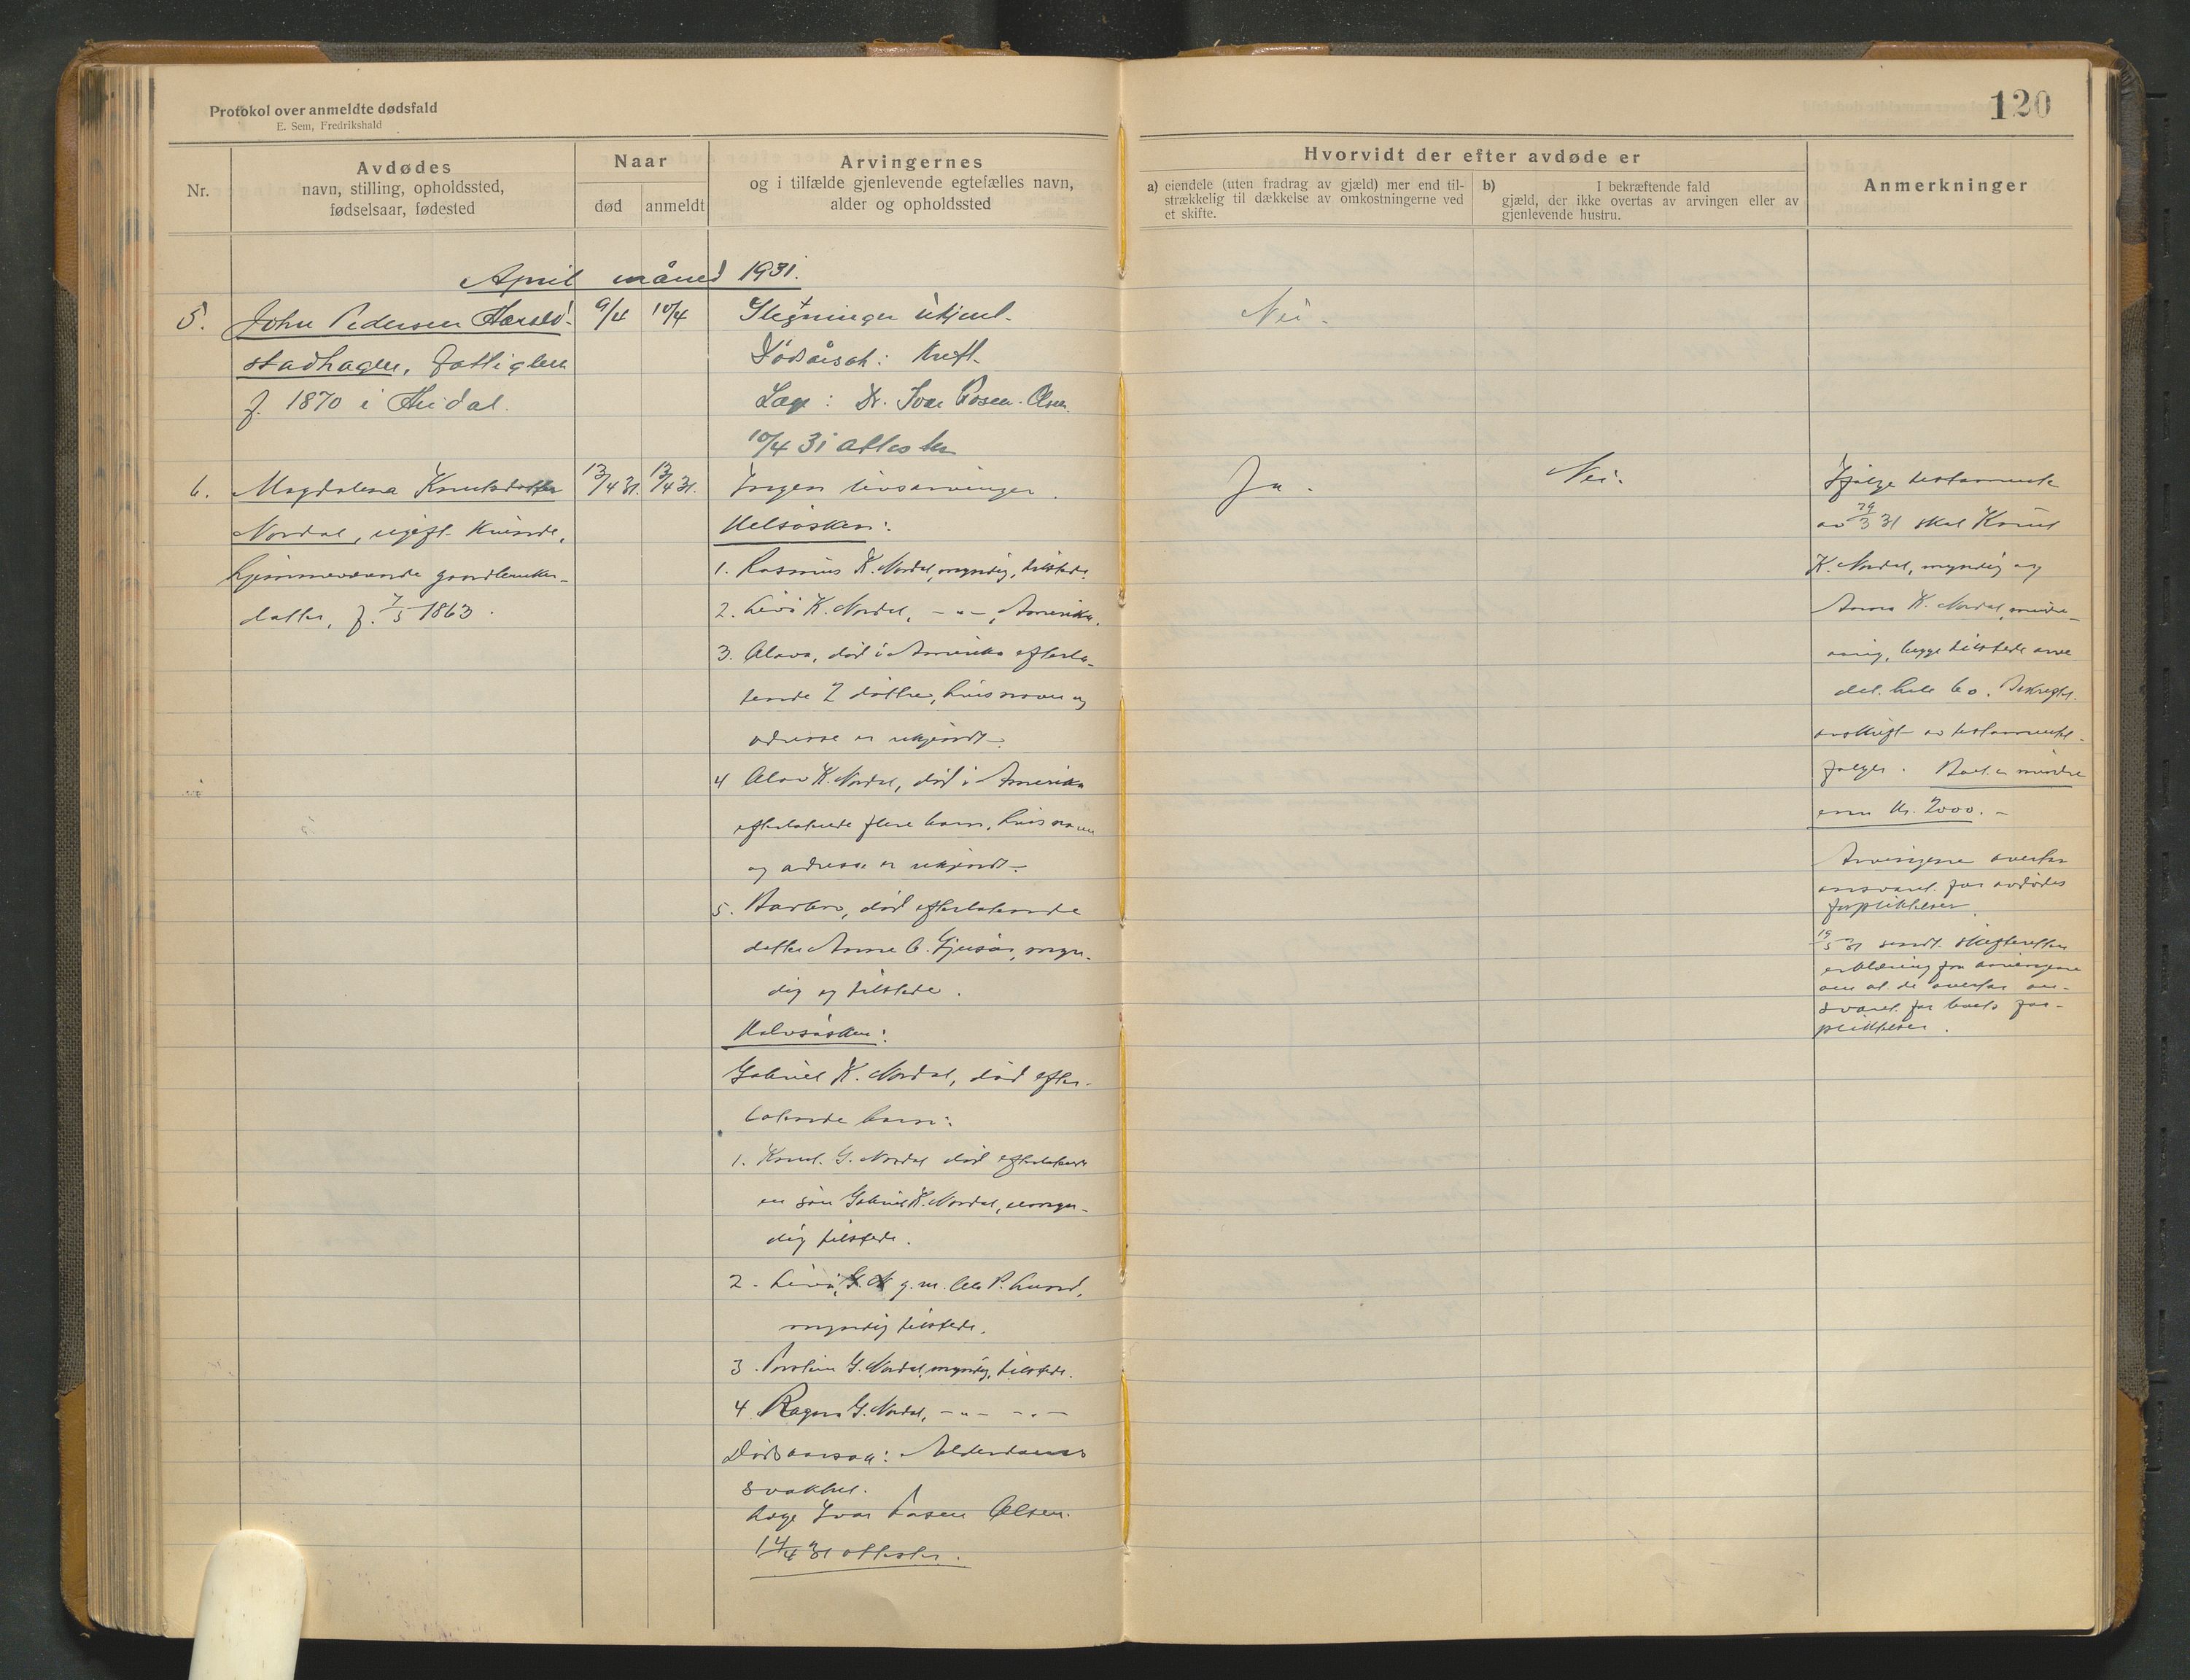 Protokol over anmeldte dødsfald
E. Sem, Fredrikshald
120
Nr.
Avdødes
navn, stilling, opholdssted,
fødselsaar, fødested
Naar
død
anmeldt
Arvingernes
og i tilfælde gjenlevende egtefælles navn,
alder og opholdssted
Hvorvidt der efter avdøde er
a) eiendele (uten fradrag av gjæld) mer end til-
strækkelig til dækkelse av omkostningerne ved
et skifte.
b) I bekræftende fald
gjæld, der ikke overtas av arvingen eller av
gjenlevende hustru.
Anmerkninger
April måned 1931.
5.
John Pedersen
stadhagen, fattiglem
f. 1870 i Heidal.
9/4
10/4
Slegtninger ukjent.
Dødsårsak: Kreft.
Læge: Dr. Ivar Rosen-Olsen
10/4 31 attester
Nei.
6.
Magdalena Knutsdatter
Nordal, ugift kvinde,
hjemmeværende gaardbruker-
datter, f. 7/5 1863.
13/4 31.
13/4 31.
Ingen livsarvinger.
Helsøsken:
1. Rasmus K. Nordal, myndig, tilstede.
2. Livi K. Nordal, - " - , Amerika.
3. Olava, død i Amerika efterla-
tende 2 døttre, hvis navn og
adresse er ukjendt.
4 Olav K. Nordal, død i Amerika
efterlatende flere barn, hvis navn
og adresse er ukjendt.
5. Barbro, død efterlatende
datter Anne O. myn-
dig og tilstede.
Halvsøsken:
Gabriel K. Nordal, død efter-
latende barn:
1. Knut G. Nordal død efterlatende
en søn Gabriel K. Nordal, umyn-
dig tilstede.
2. Livi, g. m. Ole P. Lund,
myndig tilstede.
3. G. Nordal, myndig, tilstede.
4 Ragna G. Nordal, - " - - " -
Dødsaarsak: Alderdoms
svakhet.
Læge Ivar Rosen Olsen.
14/4 31 attester.
Ja.
Nei.
Ifølge testamente
av 29/3 31 skal Knut
K. Nordal, myndig og
Anna K. Nordal, mindre-
årig, begge tilstede arve
det hele bo. Bekreftet
avskrift av testamentet
følger. Boet er mindre
enn kr. 2000.-
Arvingene overtar
ansvaret for avdødes
forpliktelser.
19/5 31 sendt skifteretten
erklæring fra arvingene
om at de overtar an-
svaret for boets for-
pliktelser.